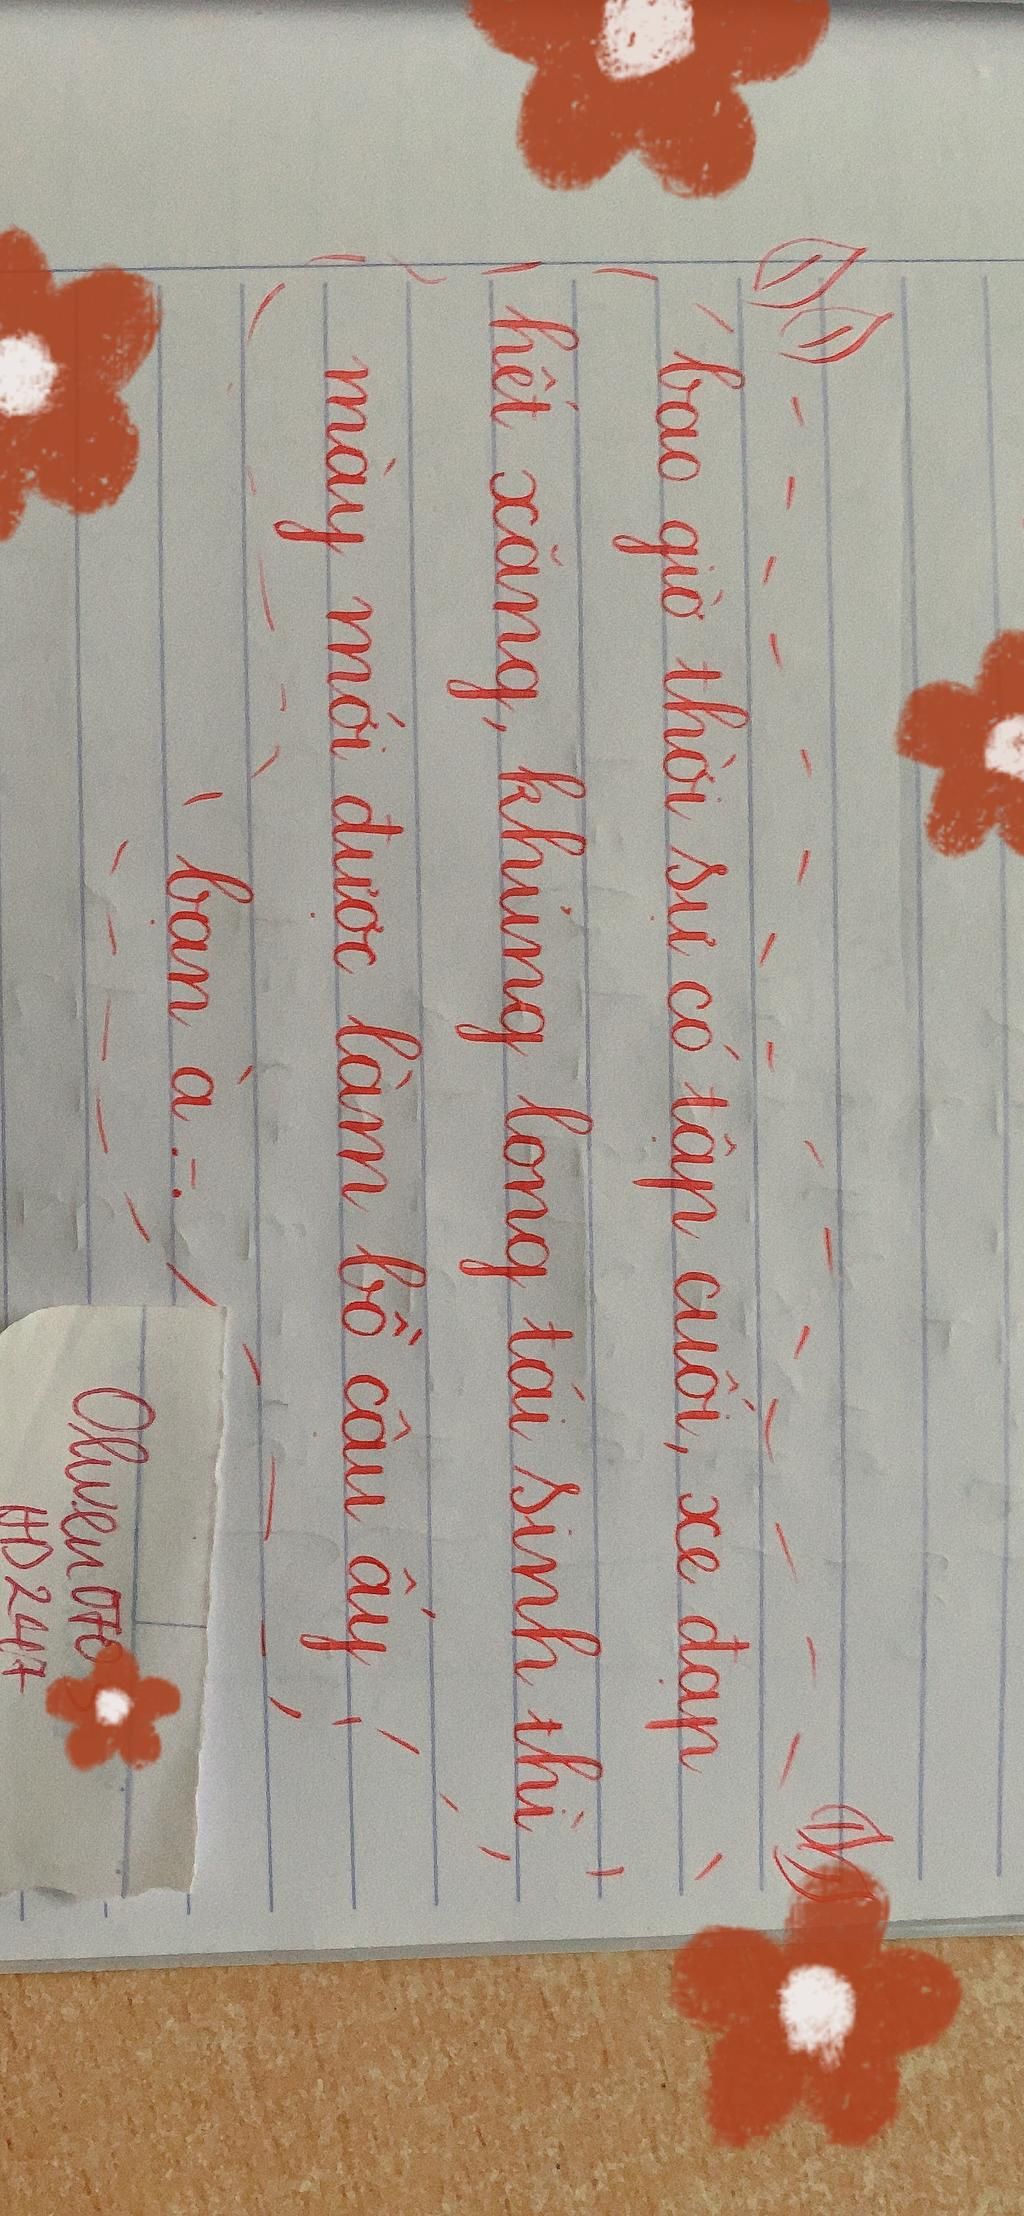 bao giờ thời sự có tập cuối, xe đạp
hết xăng, khủng long tái sinh thì
mày mới được làm bồ cậu ấy
bạn à :-.
HD247